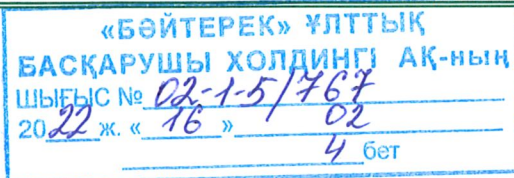 «БӘЙТЕРЕК» ҰЛТТЫҚ
БАСҚАРУШЫ ХОЛДИНГІ АҚ-ның
ШЫҒЫС № 02-1-5/767
2022 ж. « 16 » 02
4 бет